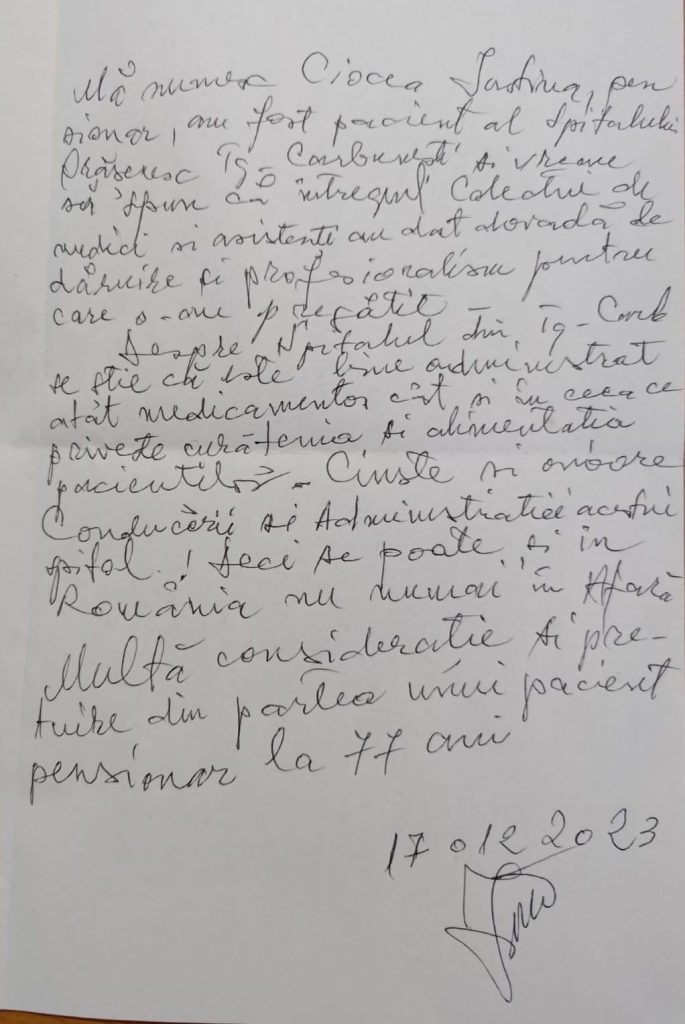 Mă numesc Ciocea Iustina, pen
sionar, am fost pacient al Spitalului
Orășenesc Tg- Carbunești si vreau
să spun că întregul Colectiv de
medici si asistenti au dat dovadă de
dăruire și profesionalism pentru
care s-au pregătit
Despre Spitalul din Tg-Carb
se știe că este bine administrat
atât medicamentos cât si în ceea ce
privește curătenia si alimentatia
pacientilor. Cinste si onoare
Conducerii si Administratiei acestui
spital! Deci se poate si în
România nu numai în Afară
Multă consideratie si pre-
tuire din partea unui pacient
pensionar la 77 ani
17 012 2023